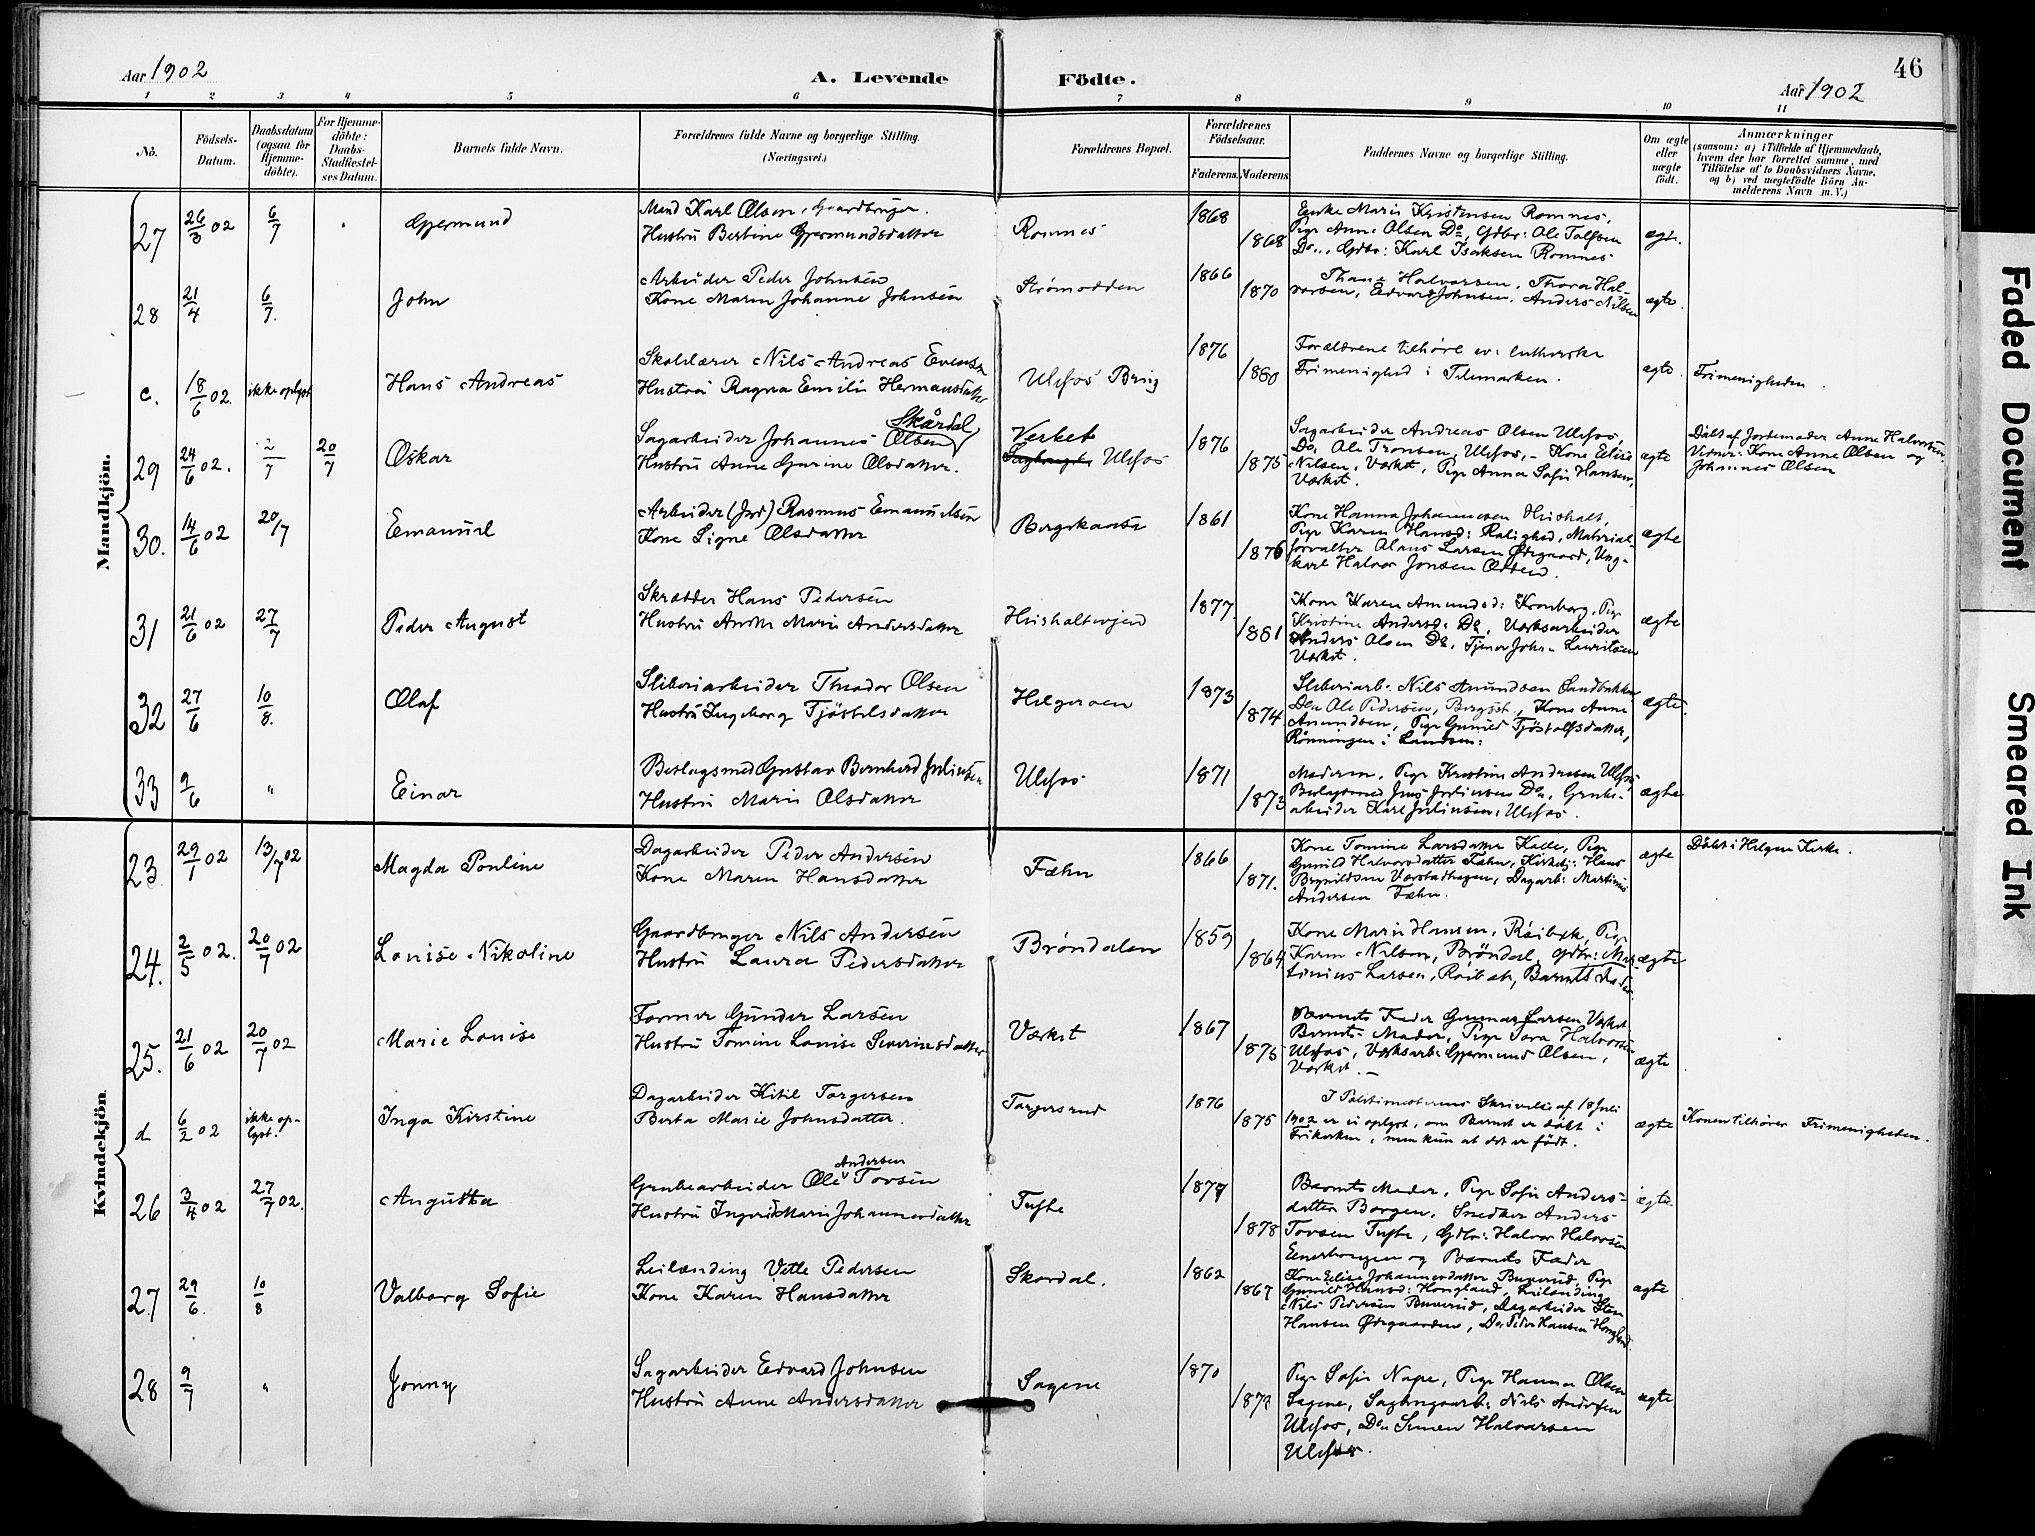 46
Aar 1902
A. Levende Födte.
Aar 1902
1 2 3 4 5 6 7 8 9 10 11
No.
Födsels-
Datum.
Daabsdatum
(ogsaa for
Hjemme-
döbte).
For Hjemme-
döbte:
Daabs-
Stadfæstel-
ses Datum.
Barnets fulde Navn.
Forældrenes fulde Navne og borgerlige Stilling.
(Næringsvei.)
Forældrenes Bopæl.
Forældrenes
Födselsaar.
Faderens. Moderens
Faddernes Navne og borgerlige Stilling.
Om ægte
eller
uægte
födt.
Anmærkninger
(saasom: a) i Tilfælde af Hjemmedaab,
hvem der har forrettet samme, med
Tilföielse af to Daabsvidners Navne.
og b) ved uægtefödte Börn An-
melderens Navn m. V.)
Mandkjön.
27 26/3 02 6/7 Gjermund
Mand Karl Olsen, Gaardbruger.
Hustru Bertine Gjermundsdatter
Romnes 1868 1868
Enke Maren Kristensen Romnes,
Pige Anne Olsen Do, Gdbr: Ole Tolfsen
Do., Gdbr: Karl Isaksen Romnes
ægte.
28 21/4 6/7. John
Arbeider Peder Johnsen
Kone Maren Johanne Johnsen
Strømodden 1866 1870
Thane Halvorsen, Thora Hal-
vorsen, Edvard Johnsen, Anders Nilsen
ægte.
c. 18/6 02. ikke oplyst Hans Andreas
Skolelærer Nils Andreas Evensen
Hustru Ragna Emilie Hermansdatter
Ulefos Brug 1876 1880
Forældrene tilhøre ev: lutherske
Frimenighed i Telemarken.
ægte. Frimenigheden.
29 24/6 02. 2/7 20/7 Oskar
Skårdal
Sagarbeider Johannes Olsen
Hustru Anne Gurine Olsdatter.
Verket
Sagbruget Ulefos 1876 1875
Sagarbeider Andreas Olsen Ulefos,
Do. Ole Tronsen, Ulefos, - Kone Edise
Nilsen, Værket, Pige Anna Sofie Hansen,
Værket.
ægte
Døbt af Jordemoder Anne Halvorsen
Vidner: Kone Anne Olsen og
Johannes Olsen
30. 14/6 02 20/7 Emanuel
Arbeider (Jord) Rasmus Emanuelsen
Kone Signe Olsdatter
Bergskaase 1861 1876
Kone Hanna Johannesen Heishalt,
Pige Karen Hansd: Rolighed, Material-
forvalter Olaus Larsen Ødegaard, Ung-
karl Halvor Jonsen Odden.
ægte
31 21/6 02 27/7 Peder August
Skrædder Hans Pedersen
Hustru Anne Marie Andersdatter
Heishaltveien 1877. 1881
Kone Karen Amundsd: Kronborg, Pige
Kristine Andersd: Do, Værksarbeider
Anders Olsen Do, Tjener John Lauritsen
Værket.
ægte
32 27/6 10/8. Olaf
Sliberiarbeider Theodor Olsen
Hustru Ingeborg Tjöstelsdatter
Helgeroen 1873 1874.
Sliberiarb. Nils Amundsen Sandbakken
Do. Ole Pedersen, , Kone Anne
Amundsen, Pige Gunild Tjöstolfsdatter,
Rönningen i Lunden.
ægte.
33 9/6 " Einar
Beslagsmed Gustav Bernhard Juliussen
Hustru Marie Olsdatter
Ulefos 1871 1873
Moderen, Pige Kristine Andersen Ulefos,
Beslagsmed Jens Juliussen Do., Grube-
arbeider Karl Juliussen, Ulefos.
ægte
Kvindekjön
23 29/1 02 13/7 02 Magda Pouline
Dagarbeider Peder Andersen
Kone Maren Hansdatter
Fæhn 1866 1871.
Kone Tomine Larsdatter Kaste, Pige
Gunild Halvorsdatter Fæhn, Kirketj: Hans
Brynildsen Værstadhagen, Dagarb: Martinus
Andersen Fæhn.
ægte Døbt i Helgen Kirke.
24. 2/5 02. 20/7 02 Louise Nikoline
Gaardbruger Nils Andersen
Hustru Laura Pedersdatter
Brøndalen 1859 1864
Kone Maren Hansen, Røibæk, Pige
Karen Nilsen, Brøndal, Gdbr: Mar-
tinius Larsen, Røibæk, Barnets Fader.
ægte
25. 21/6 02 20/7 02 Marie Louise
Former Gunder Larsen
Hustru Tomine Louise Severinsdatter
Værket 1867 1875
Barnets Fader Gunnar Larsen Værket
Barnets Moder, Pige Tora Halvorsen
Ulefos, Værksarb: Gjermund Olsen,
Værket.
ægte
d 6/2 02 ikke op-
lyst. Inga Kirstine
Dagarbeider Kitil Torgersen
Berta Marie Johnsdatter.
Torgersrud 1876 1875
I Politimesterens Skrivelse af 18 Juli
1902 er ei oplyst, om Barnet er døbt i
Frikirken, men kun at det er født.
ægte Konen tilhører Frimenigheden.
26 3/4 02 27/7 02. Augusta
Andersen
Grubearbeider Ole Tovsen
Hustru Ingerid Marie Johannesdatter
Tufte 1877 1878
Barnets Moder, Pige Sofie Anders-
datter Borgen, Snedker Anders
Tovsen Tufte, Gdbr: Halvor Halvorsen
Enerhaugen og Barnets Fader
ægte.
27 29/6. 10/8 Valborg Sofie
Leilænding Vetle Pedersen
Kone Karen Hansdatter
Skardal. 1862 1867
Kone Edise Johannesdatter Buverud, Pige
Gunild Hansd: Hougland, Leilænding
Nils Pedersen Buverud, Dagarbeider Sten
Hansen Ødegaarden, Do. Peder Hansen Hougland
ægte
28 9/7 " Jonny
Sagarbeider Edvard Johnsen
Hustru Anne Andersdatter
Sagene 1870 1878
Pige Sofie Nape, Pige Hanna Olsen
Sagene, Sagbrugsarb: Nils Andersen
Ulefos, Do. Simen Halvorsen
Ulefos.
ægte
Faded Document
Smeared Ink